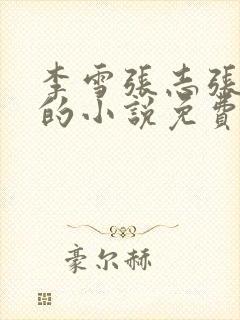 李雪張志張
的小說免費
豪尔赫